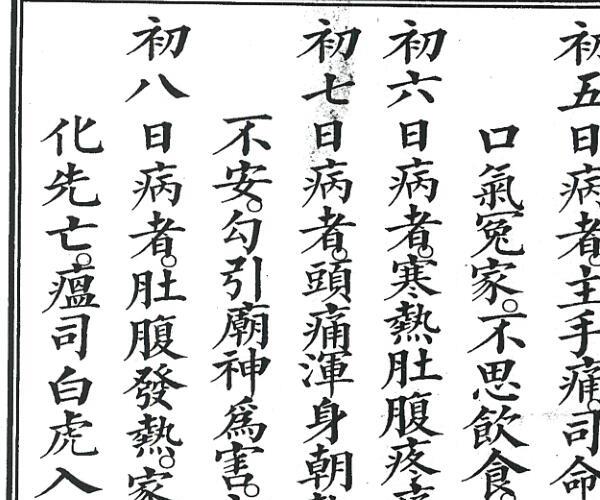 初五日病者。主手痛。司命
口氣冤家。不思飲食。
初六日病者。寒熱肚腹疼
初七日病者。頭痛渾身朝
不安。勾引廟神爲害。
初八日病者。肚腹發熱。家
化先亡。瘟司白虎入